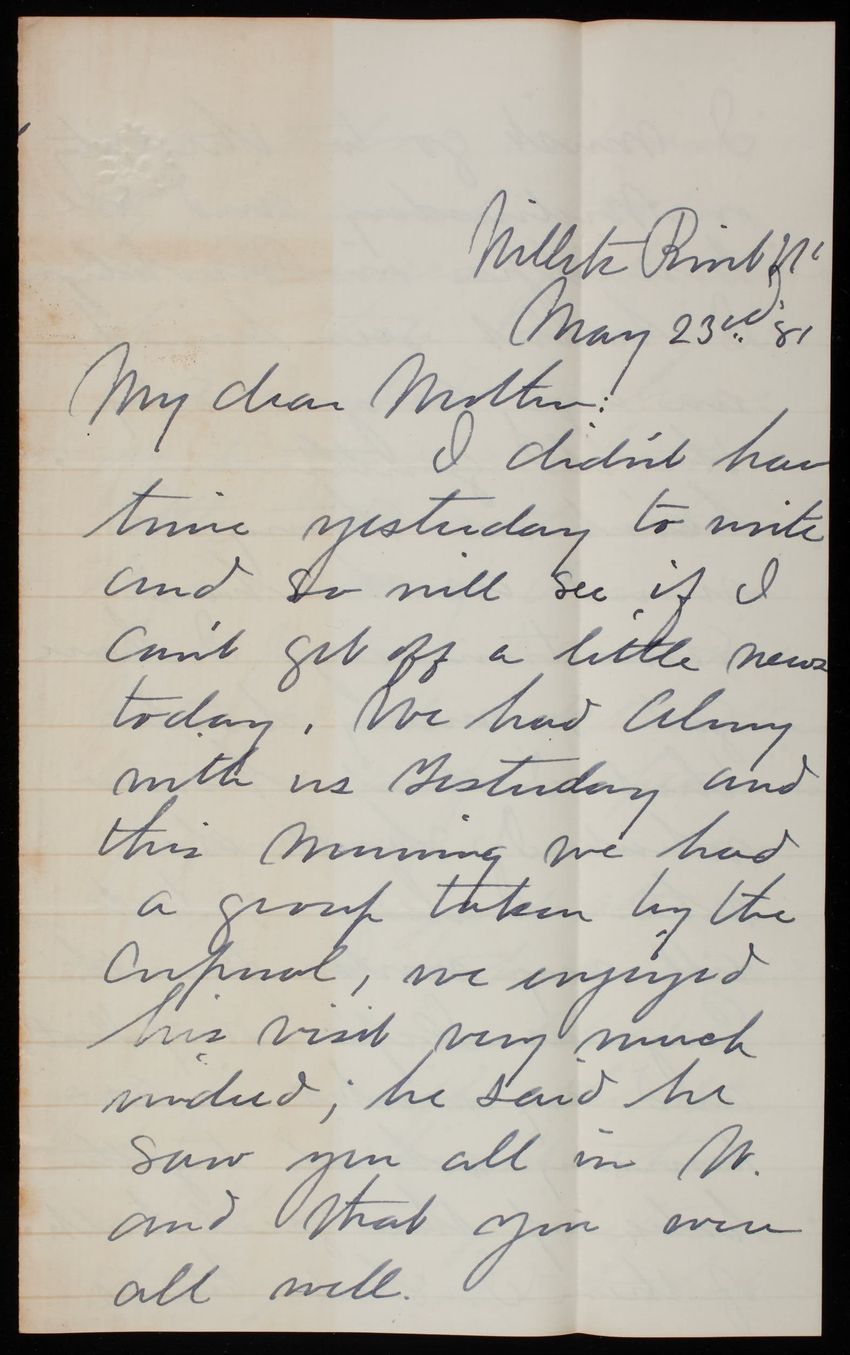 Willets Point NY
May 23rd '81
My dear Mother:
I didn't have
time yesterday to write
and so will see if I
can't get off a little news
today. We had Almy
with us yesterday and
this morning we had
a group taken by the
Corporal, we enjoyed
his visit very much
indeed; he said he
saw you all in W.
and that you were
all well.